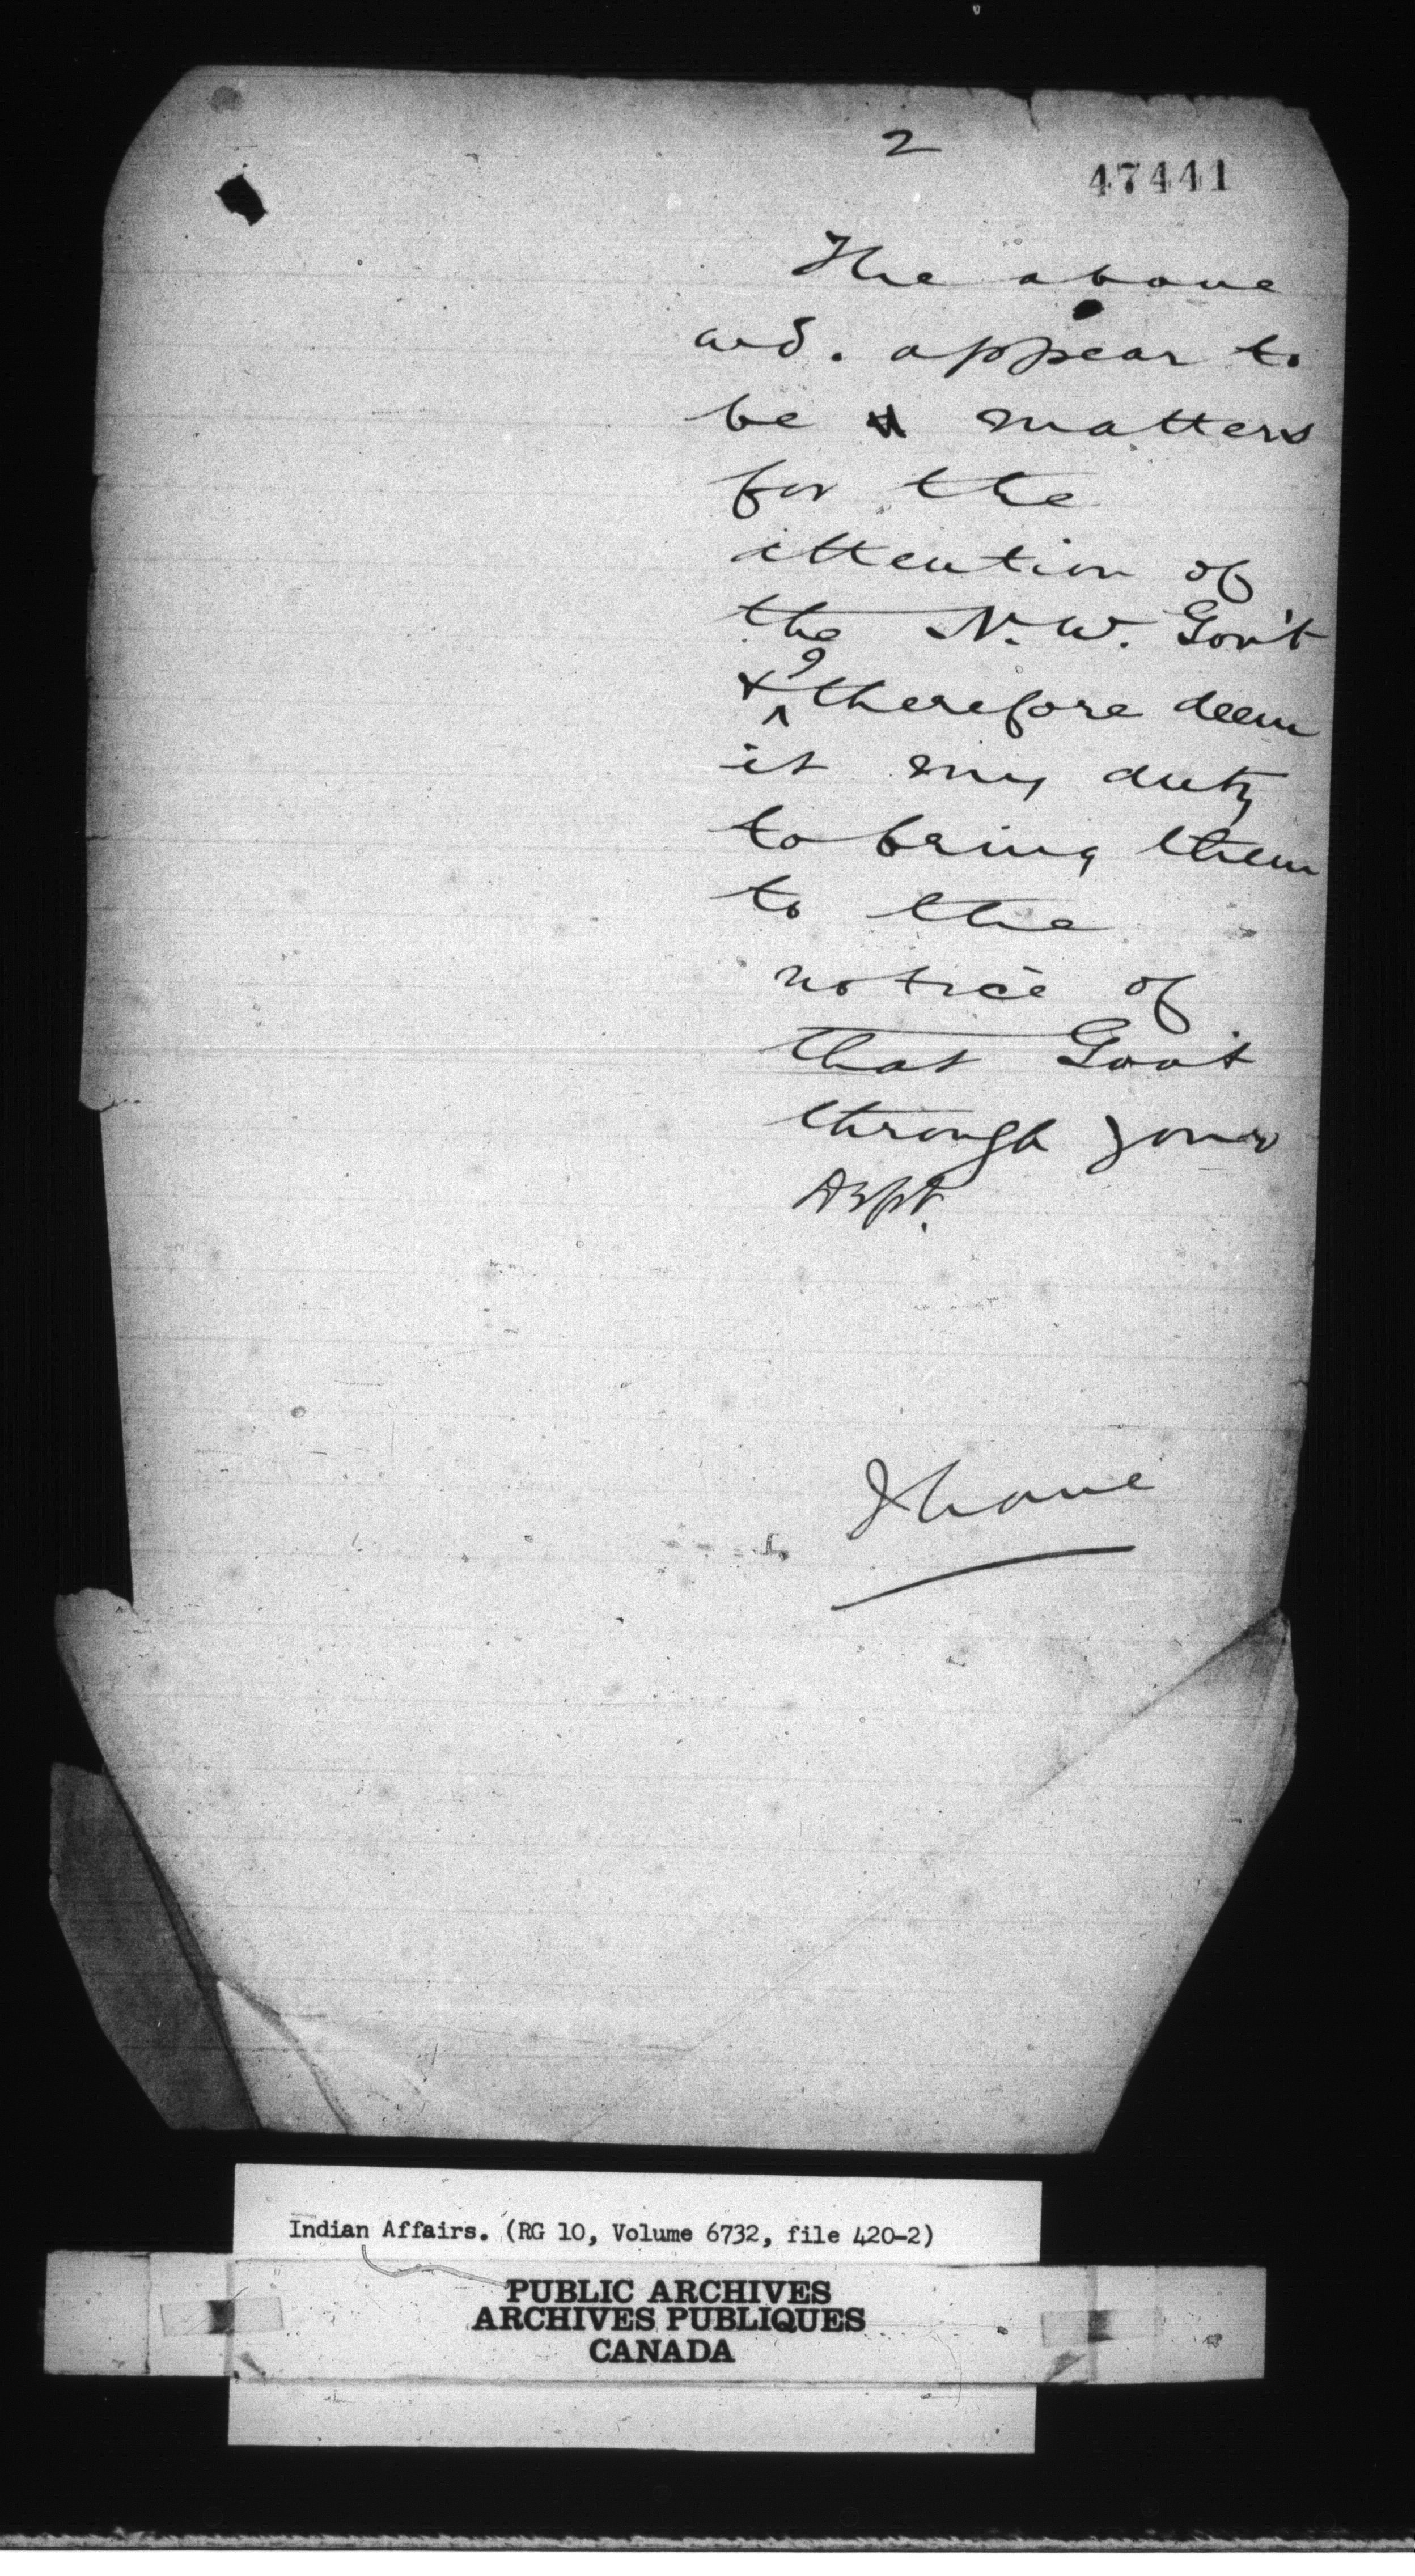 2
47441
The above
wd. appear to
be matters
for the
attention of
the N. W. Gov't
& I therefore deem
it my duty
to bring them
to the
notice of
that Govt
through your
Dept.
I have
Indian Affairs. (RG 10, Volume 6732, file 420-2)
PUBLIC ARCHIVES
ARCHIVES PUBLIQUES
CANADA